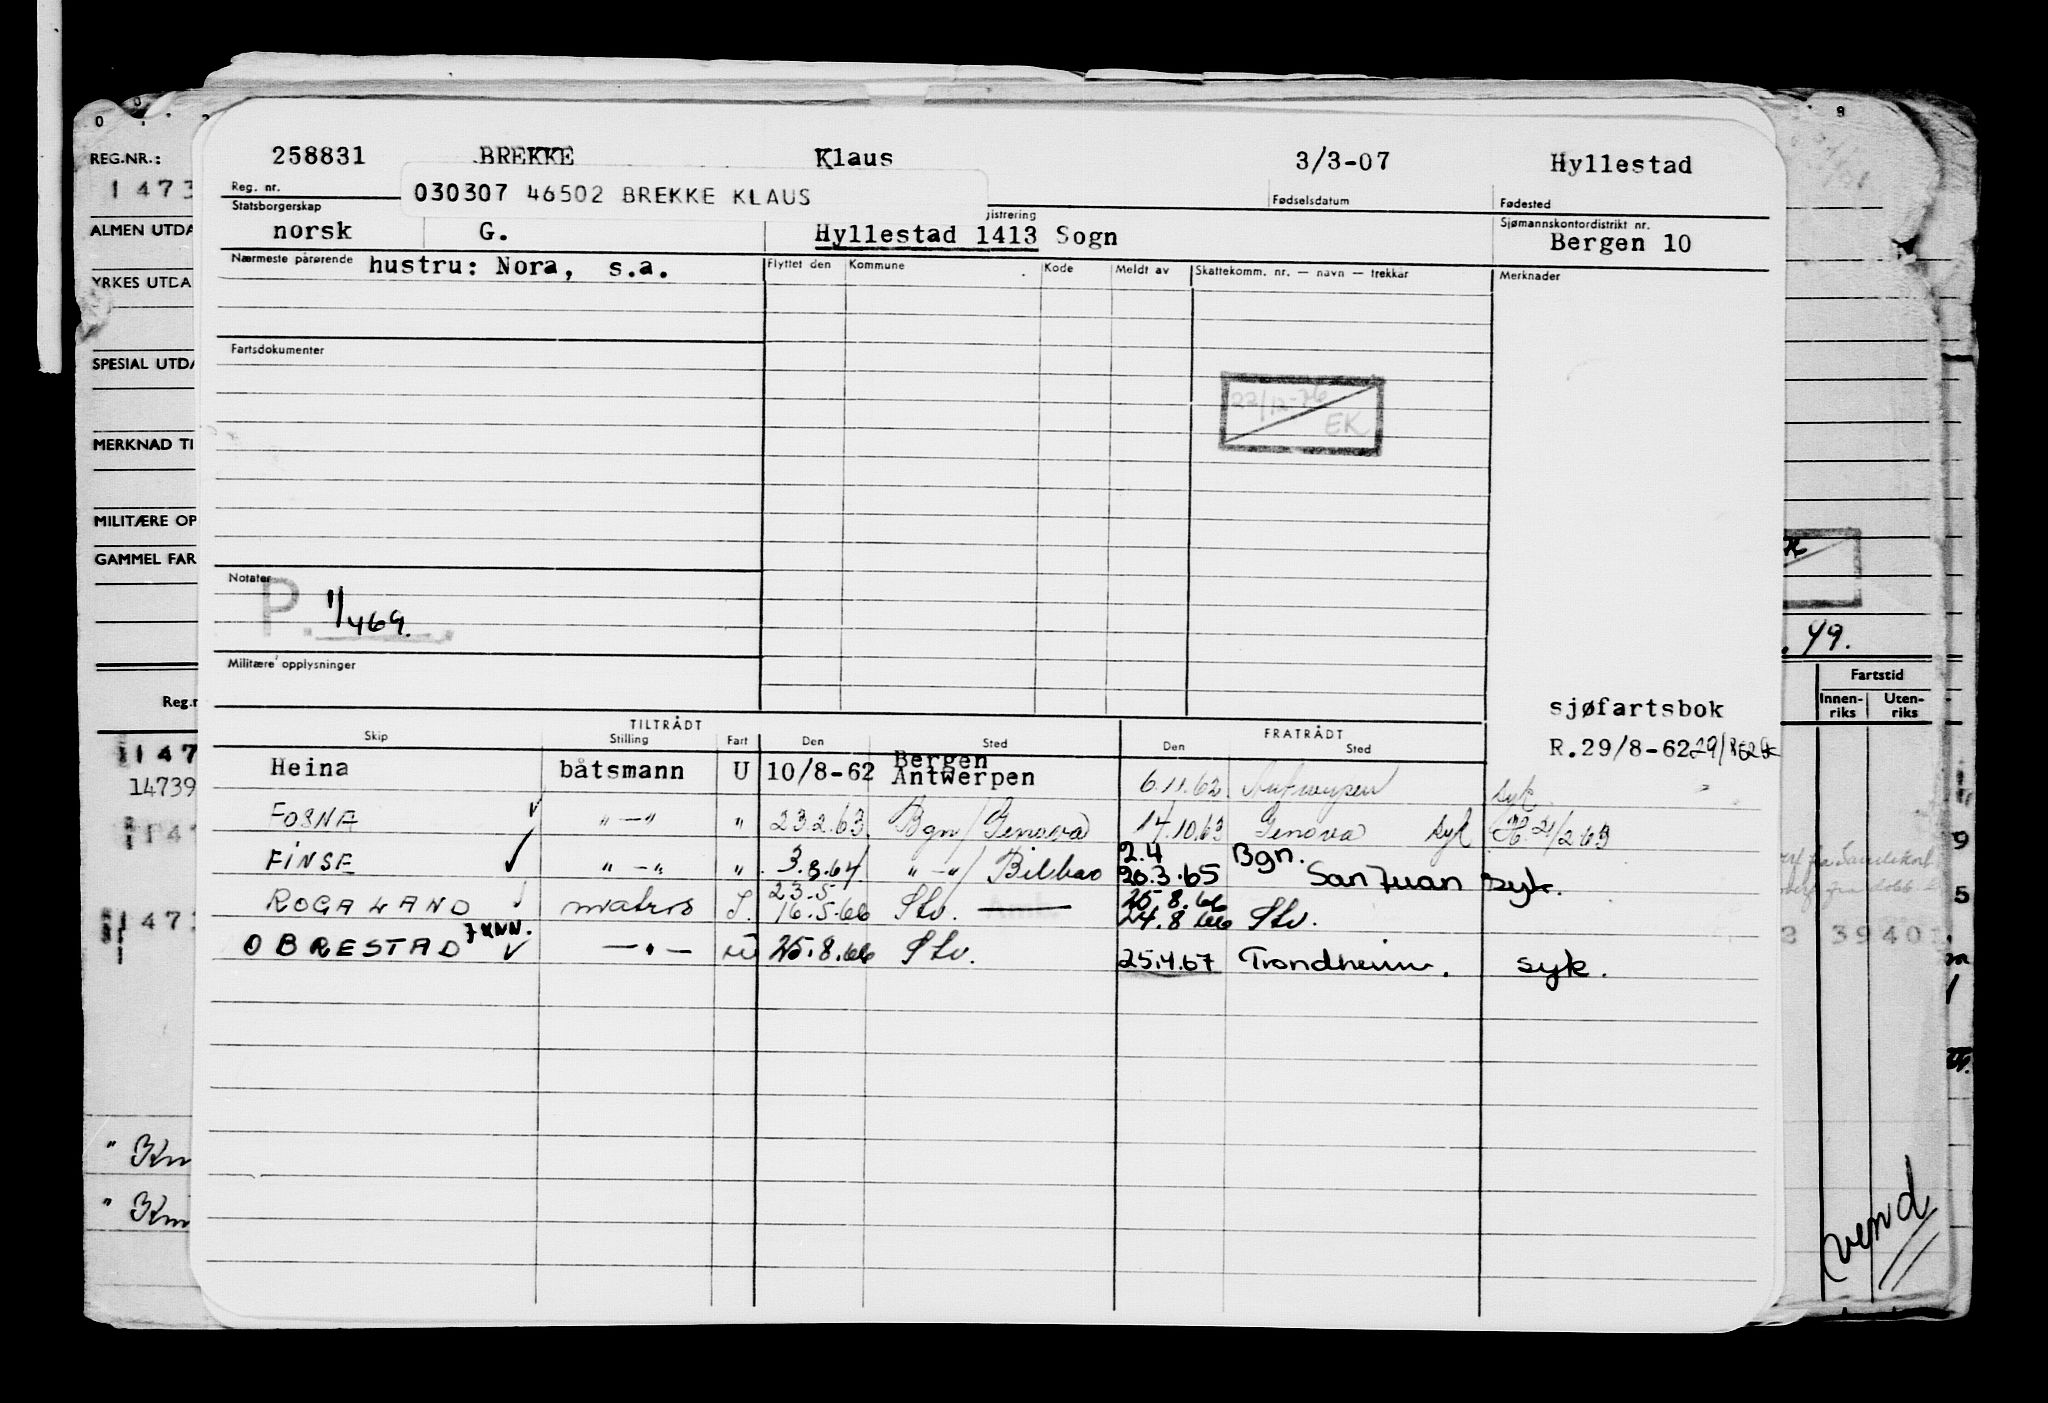 258831 BREKKE Klaus 3/3-07 Hyllestad
Reg. nr. 030307 46502 BREKKE KLAUS Fødselsdatum Fødested
Statsborgerskap gistrering Sjømannskontordistrikt nr.
norsk G. Hyllestad 1413 Sogn Bergen 10
Nærmeste pårørende hustru: Nora, s.a. Flyttet den Kommune Kode Meldt av Skattekomm. nr. — navn — trekkår Merknader
Fartsdokumenter
22/12-76
EK
Notater
P. 1/469.
Militære opplysninger
sjøfartsbok
R.29/8-62
TILTRÅDT FRATRÅDT
Skip Stilling Fart Den Sted Den Sted
Heina båtsmann U 10/8-62 Bergen Antwerpen 6.11.62 Antwerpen syk
FOSNA " — " " 23.2.63 Bgn / Genova 14.10.63 Genova syk
FINSE " — " " 3.3.64 " — " / Bilbao 2.4 20.3.65 Bgn. San Juan syk.
ROGALAND matros 23.5 16.5.66 Stv. 25.8.66 24.8.66 Stv.
OBRESTAD — " — 25.8.66 Stv. 25.4.67 Trondheim. syk.
REG.NR.:
1 473
ALMEN UTDA
YRKES UTDA
SPESIAL UTDA
MERKNAD TI
MILITÆRE OP
GAMMEL FAR
Reg.n
147
14739
147
1 473
49.
Fartstid
Innen-riks Uten-riks
3940
9
5
vend